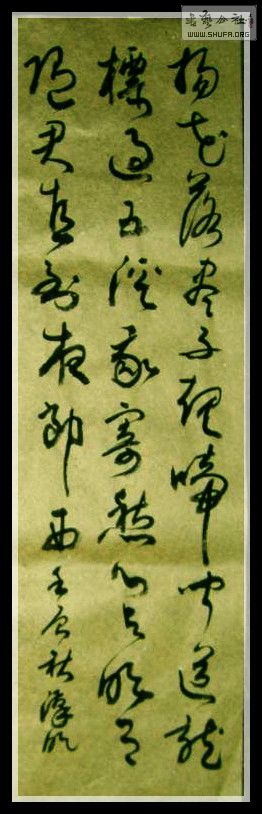 书艺公社
WWW.SHUFA.ORG
杨花落尽子规啼闻道龙
标过五溪我寄愁心与明月
随君直到夜郎西 秋